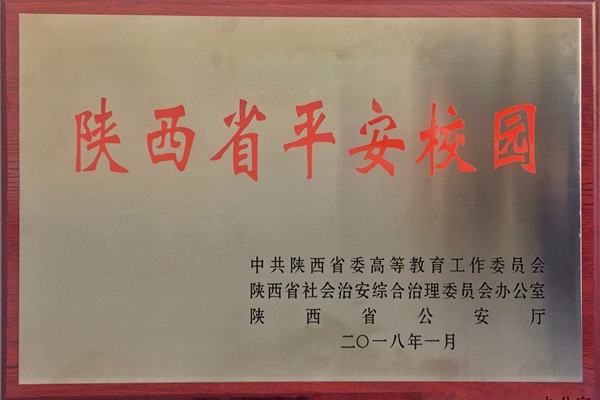 陕西省平安校园
中共陕西省委高等教育工作委员会
陕西省社会治安综合治理委员会办公室
陕西省公安厅
二〇一八年一月